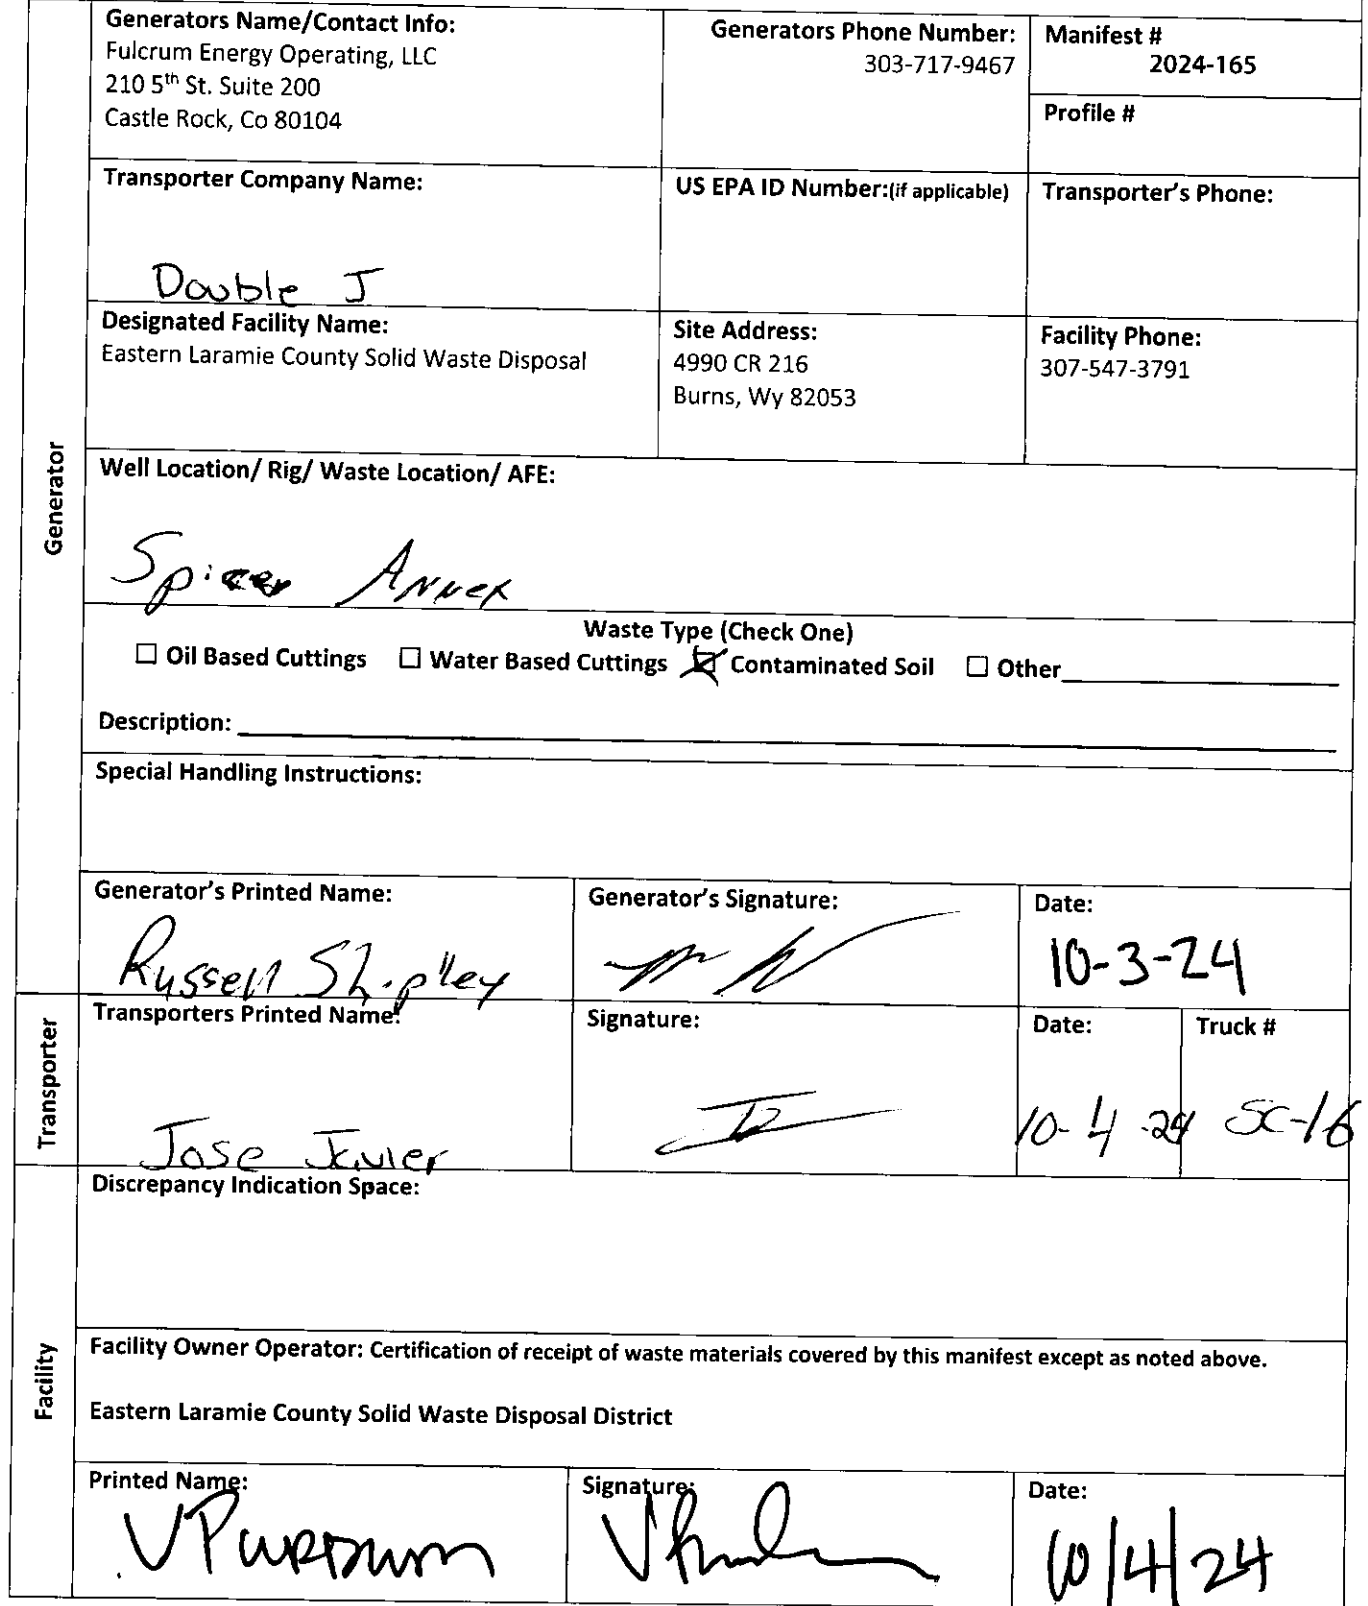 Generators Name/Contact Info:
Fulcrum Energy Operating, LLC
210 5th St. Suite 200
Castle Rock, Co 80104
Generators Phone Number:
303-717-9467
Manifest #
2024-165
Profile #
Transporter Company Name:
Double J
US EPA ID Number:(if applicable)
Transporter's Phone:
Designated Facility Name:
Eastern Laramie County Solid Waste Disposal
Site Address:
4990 CR 216
Burns, Wy 82053
Facility Phone:
307-547-3791
Generator
Well Location/ Rig/ Waste Location/ AFE:
Spicer Annex
Waste Type (Check One)
☐ Oil Based Cuttings ☐ Water Based Cuttings ☒ Contaminated Soil ☐ Other
Description:
Special Handling Instructions:
Generator's Printed Name:
Russell Shipley
Generator's Signature:
Date:
10-3-24
Transporter
Transporters Printed Name:
Jose Javier
Signature:
Date:
10-4-24
Truck #
SC-16
Facility
Discrepancy Indication Space:
Facility Owner Operator: Certification of receipt of waste materials covered by this manifest except as noted above.
Eastern Laramie County Solid Waste Disposal District
Printed Name:
V Purdum
Signature:
Date:
10/4/24